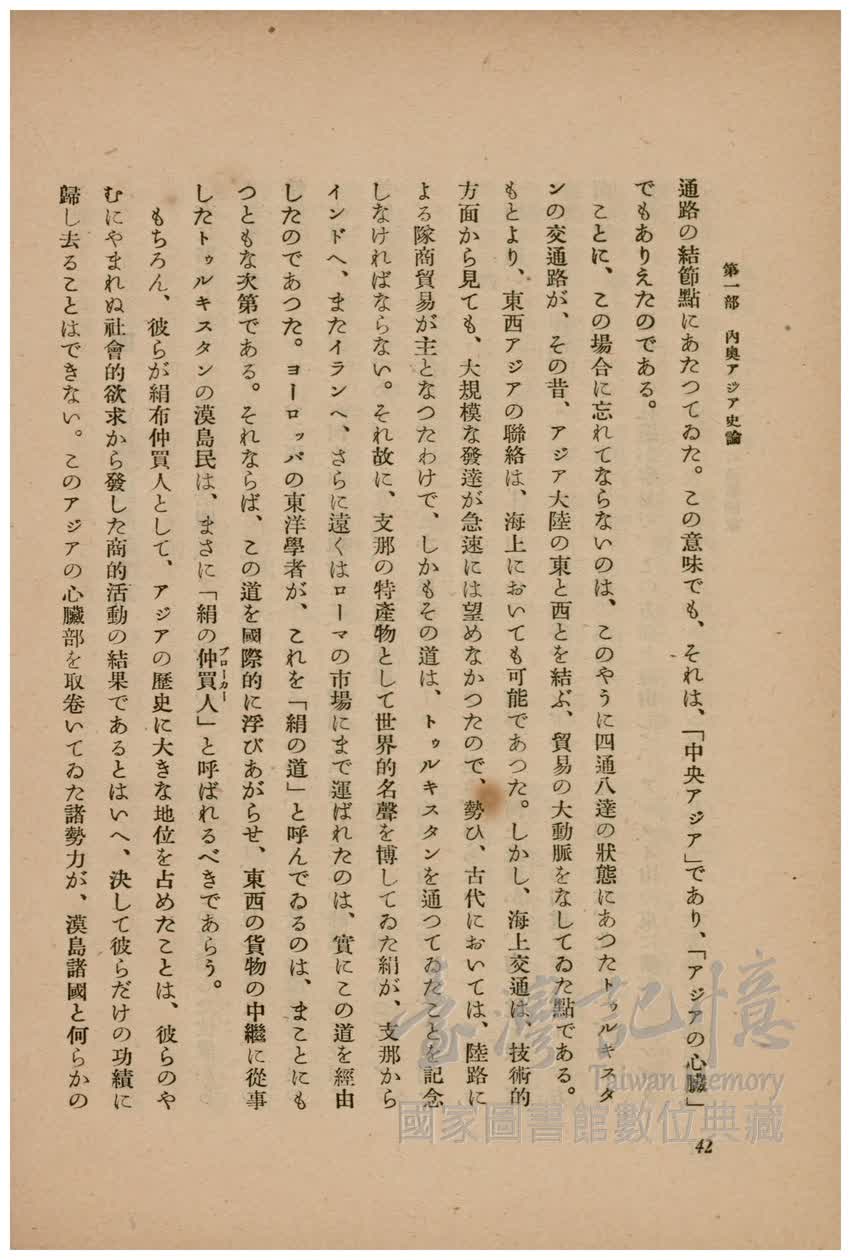 第一部　內奧アジア史論
通路の結節點にあたつてゐた。この意味でも、それは、「中央アジア」であり、「アジアの心臟」
でもありえたのである。
ことに、この場合に忘れてならないのは、このやうに四通八達の狀態にあつたトゥルキスタ
ンの交通路が、その昔、アジア大陸の東と西とを結ぶ、貿易の大動脈をなしてゐた點である。
もとより、東西アジアの聯絡は、海上においても可能であつた。しかし、海上交通は、技術的
方面から見ても、大規模な發達が急速には望めなかつたので、勢ひ、古代においては、陸路に
よる隊商貿易が主となつたわけで、しかもその道は、トゥルキスタンを通つてゐたことを記念
しなければならない。それ故に、支那の特產物として世界的名聲を博してゐた絹が、支那から
インドへ、またイランへ、さらに遠くはローマの市場にまで運ばれたのは、實にこの道を經由
したのであつた。ヨーロッパの東洋學者が、これを「絹の道」と呼んでゐるのは、まことにも
つともな次第である。それならば、この道を國際的に浮びあがらせ、東西の貨物の中繼に從事
したトゥルキスタンの漠島民は、まさに「絹の仲買人」と呼ばれるべきであらう。
ブローカー
もちろん、彼らが絹布仲買人として、アジアの歷史に大きな地位を占めたことは、彼らのや
むにやまれぬ社會的欲求から發した商的活動の結果であるとはいへ、決して彼らだけの功績に
歸し去ることはできない。このアジアの心臟部を取卷いてゐた諸勢力が、漠島諸國と何らかの
42
臺灣記憶
Taiwan Memory
國家圖書館數位典藏